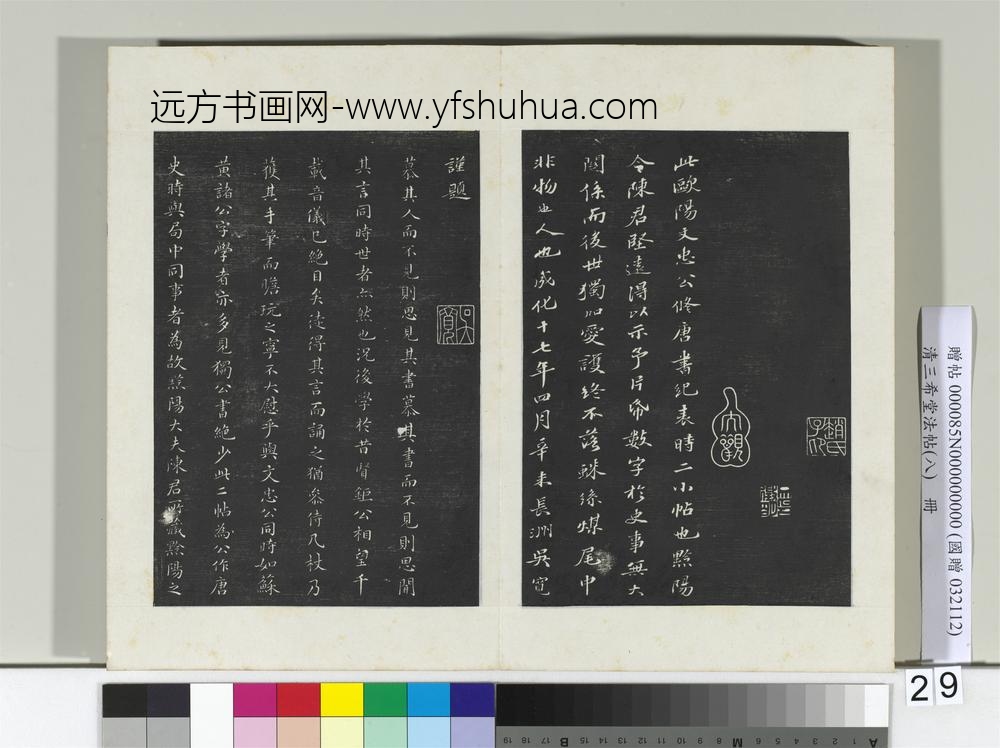 远方书画网-www.yfshuhua.com
此歐陽文忠公修唐書紀表時二小帖也黟陽
令陳君堅遠得以示予片帋數字於史事無大
関係而後世獨加愛護終不落蛛絲煤尾中
非物也人也成化十七年四月辛未長洲吳寬
謹題
慕其人而不見則思見其書慕其書而不見則思聞
其言同時世者亦然也況後學於昔賢鉅公相望千
載音儀已絕目矣徒得其言而誦之猶恭侍几杖乃
獲其手筆而瞻玩之寧不大慰乎與文忠公同時如蘇
黃諸公字學者亦多見獨公書絕少此二帖為公作唐
史時與局中同事者為故黟陽大夫陳君所藏黟陽之
大觀
趙氏子印
贈帖 000085N000000000 (國贈 032112)
清三希堂法帖(八) 冊
29
19 18 17 16 B 15 14 13 12 11 10 9 8 M 7 6 5 4 3 2 1 A